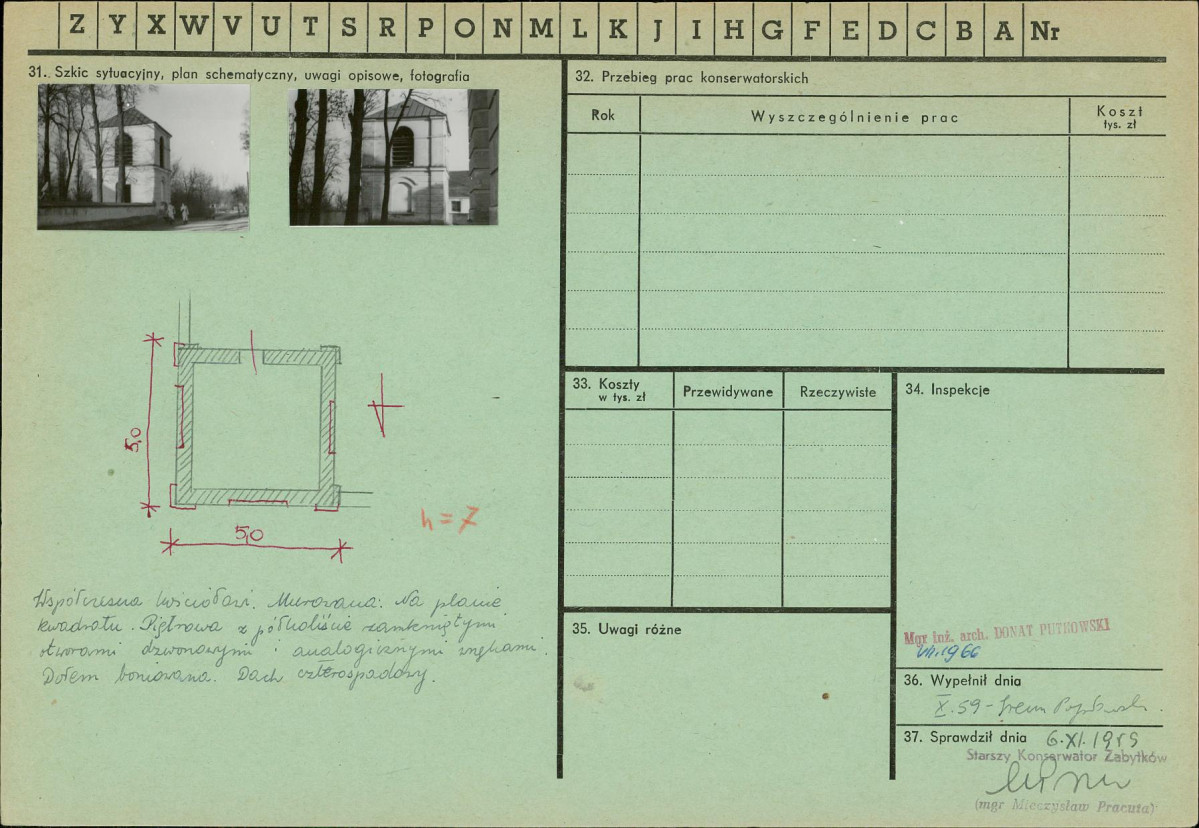 Z Y X W V U T S R P O N M L K J I H G F E D C B A Nr
31. Szkic sytuacyjny, plan schematyczny, uwagi opisowe, fotografia
5,0
5,0
h = 7
Współczesna kościołowi. Murowana. Na planie
kwadratu. Piętrowa z półkoliście zamkniętymi
otworami dzwonowymi i analogicznymi wnękami.
Dołem boniowana. Dach czterospadowy.
32. Przebieg prac konserwatorskich
Rok
Wyszczególnienie prac
Koszt
tys. zł
33. Koszty
w tys. zł
Przewidywane
Rzeczywiste
34. Inspekcje
Mgr inż. arch. DONAT PUTKOWSKI
VII.1966
35. Uwagi różne
36. Wypełnił dnia
X.59 - Irena
37. Sprawdził dnia 6.XI.1959
Starszy Konserwator Zabytków
(mgr Mieczysław Pracuta)